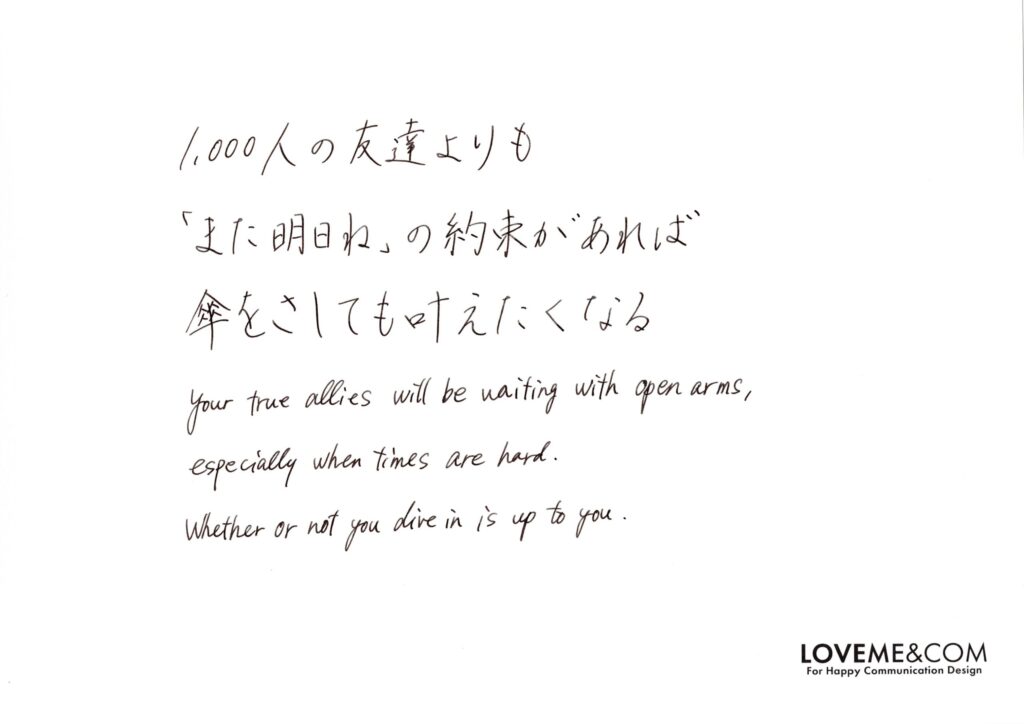 1,000人の友達よりも
「また明日ね」の約束があれば
傘をさしても叶えたくなる
Your true allies will be waiting with open arms,
especially when times are hard.
Whether or not you dive in is up to you.
LOVEME&COM
For Happy Communication Design